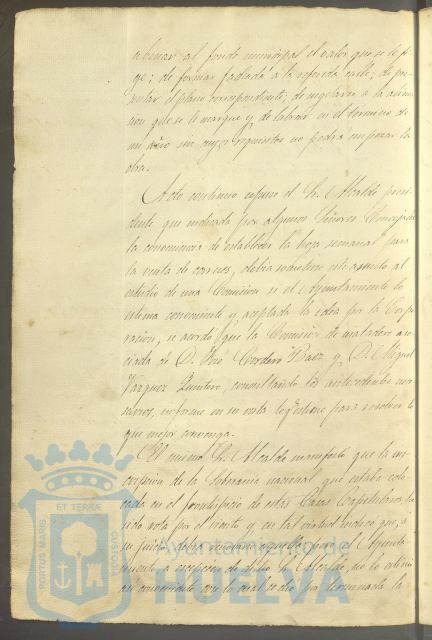 abonar al fondo municipal el valor que se le fi-
ge; de formar fachada a la referida calle; de pre-
sentar el plano correspondiente; de sugetarse a la alinea-
cion que se le marque y de labrar en el termino de
un año sin cuyos requisitos no podra empezar la
obra.
Acto continuo espuso el Sr. Alcalde presi-
dente que indicada por algunos Señores Concejales
la conveniencia de establecer la hoja semanal para
la venta de carnes, debia someterse este asunto al
estudio de una Comision si el Ayuntamiento lo
estima conveniente y aceptada la idea por la Corpo-
racion, se acordó que la Comision de matadero aso-
ciada de D. José Cordero Baez y D. Miguel
Vazquez Quintero, consultando los antecedentes nece-
sarios, informe en su vista lo para resolver lo
que mejor convenga.
El mismo Sr. Alcalde manifestó que la ins-
cripcion de la Soberania nacional que estaba colo-
cada en el frontispicio de estas Casas Capitulares ha
sido rota por el viento y en tal virtud indicó que, á
su juicio debia el Ayunta-
miento a escepcion de dicho Sr. Alcalde, no lo estimó
conveniente con lo cual se dió por terminada la
ET TERRÆ
PORTUS MARIS
CUSTODIA
Ayuntamiento de
HUELVA